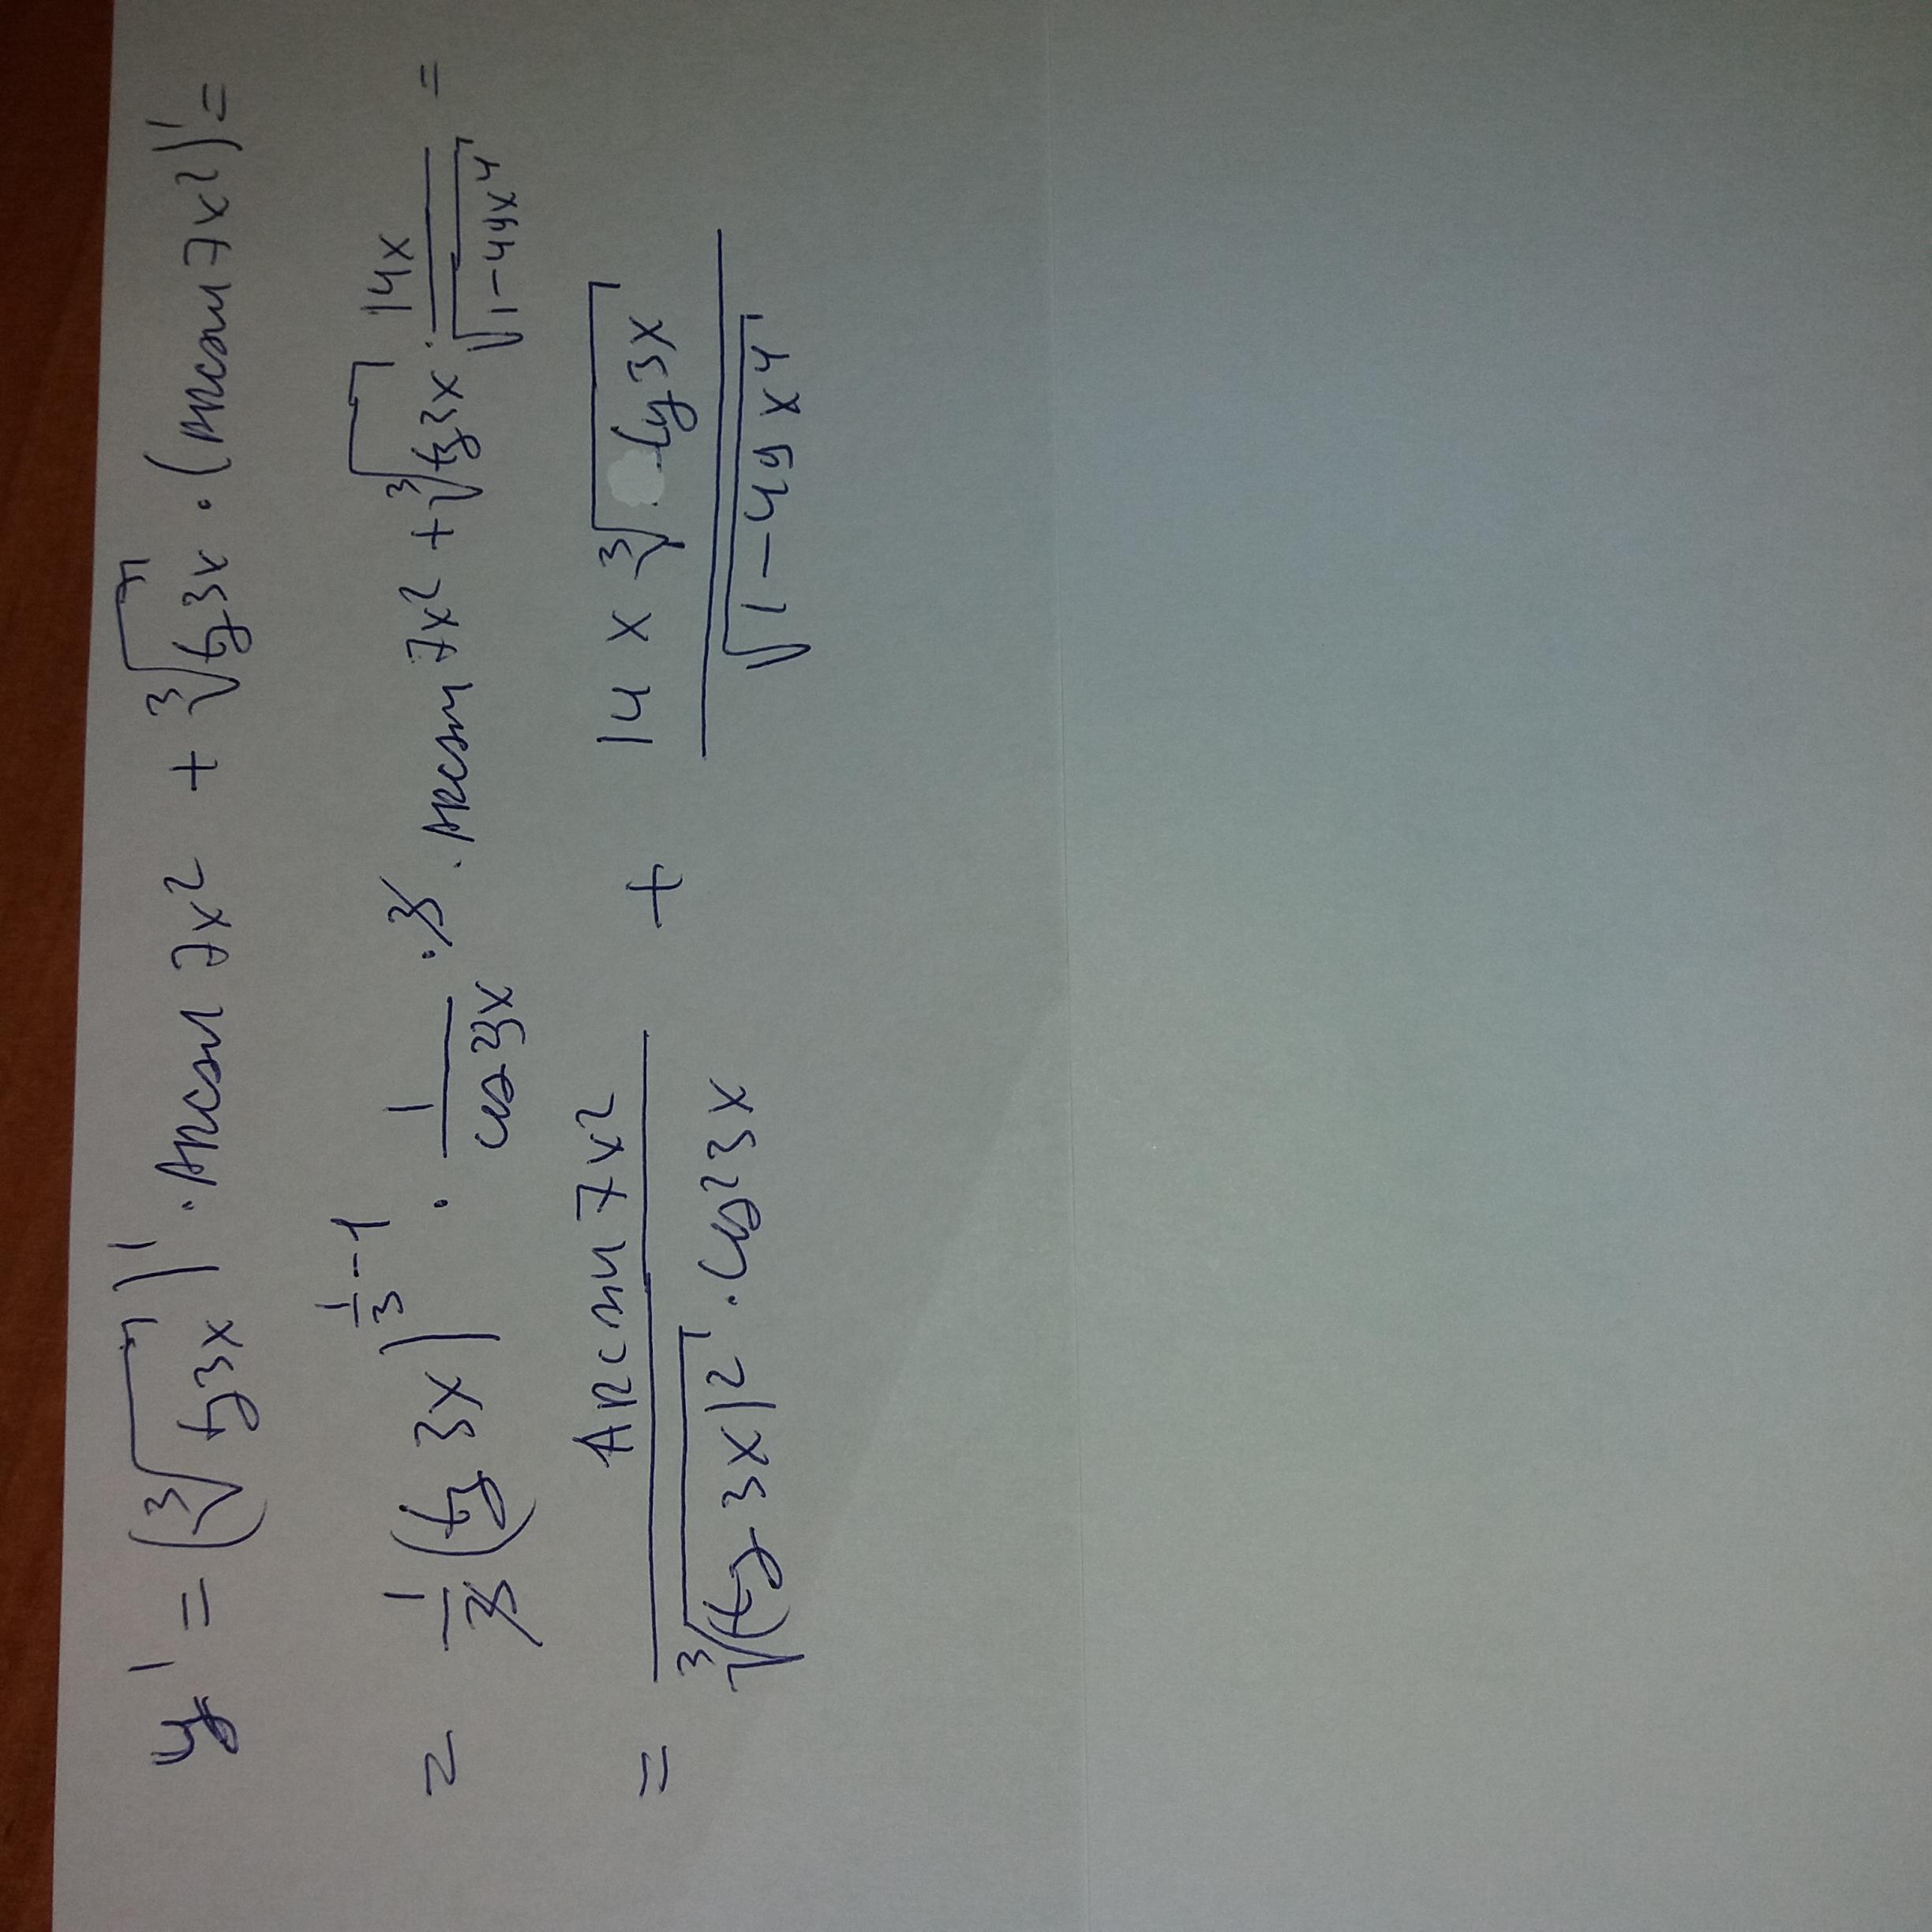 y' = (∛(tg3x))' · arcsin 7x² + ∛(tg3x) · (arcsin 7x²)' =
= 1/3 (tg 3x)^(1/3 - 1) · 1/cos²3x · 3 · arcsin 7x² + ∛(tg3x) · 14x/√(1-49x⁴) =
= arcsin 7x²/(∛((tg 3x)²) · cos²3x) + 14x ∛(tg3x)/√(1-49x⁴)